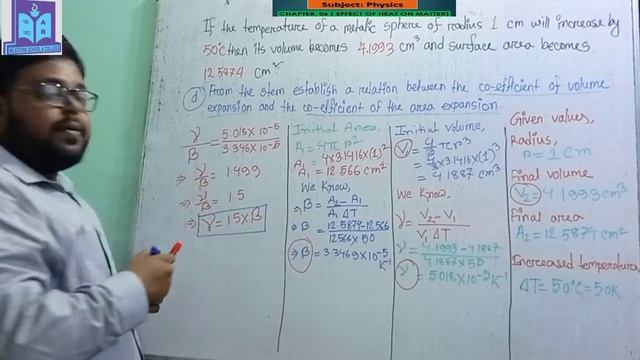 Subject: Physics
CHAPTER 04 ( EFFECT OF HEAT ON MATTER)
If the temperature of a metalic sphere of radius 1 cm will increase by
50°C then its volume becomes 4.1993 cm³ and surface area becomes
12.5874 cm²
(d) From the stem establish a relation between the co-efficient of volume
expansion and the co-efficient of the area expansion.
γ/β = 5.018×10⁻⁵/3.346×10⁻⁵
⇒ γ/β = 1.499
⇒ γ/β = 1.5
⇒ γ = 1.5×β
Initial Area,
A₁ = 4πr²
A₁ = 4×3.1416×(1)²
A₁ = 12.566 cm²
We Know,
β = A₂-A₁/A₁ΔT
⇒ β = 12.5874-12.566/12.566×50
⇒ β = 3.3469×10⁻⁵ K⁻¹
Initial volume,
V₁ = 4/3 πr³
= 4/3×3.1416×(1)³
= 4.1887 cm³
We Know,
γ = V₂-V₁/V₁ΔT
γ = 4.1993-4.1887/4.1887×50
γ = 5.018×10⁻⁵K⁻¹
Given values,
Radius,
r = 1 cm
Final volume
V₂ = 4.1993cm³
Final area
A₂ = 12.5874 cm²
Increased temperature,
ΔT = 50°C = 50K